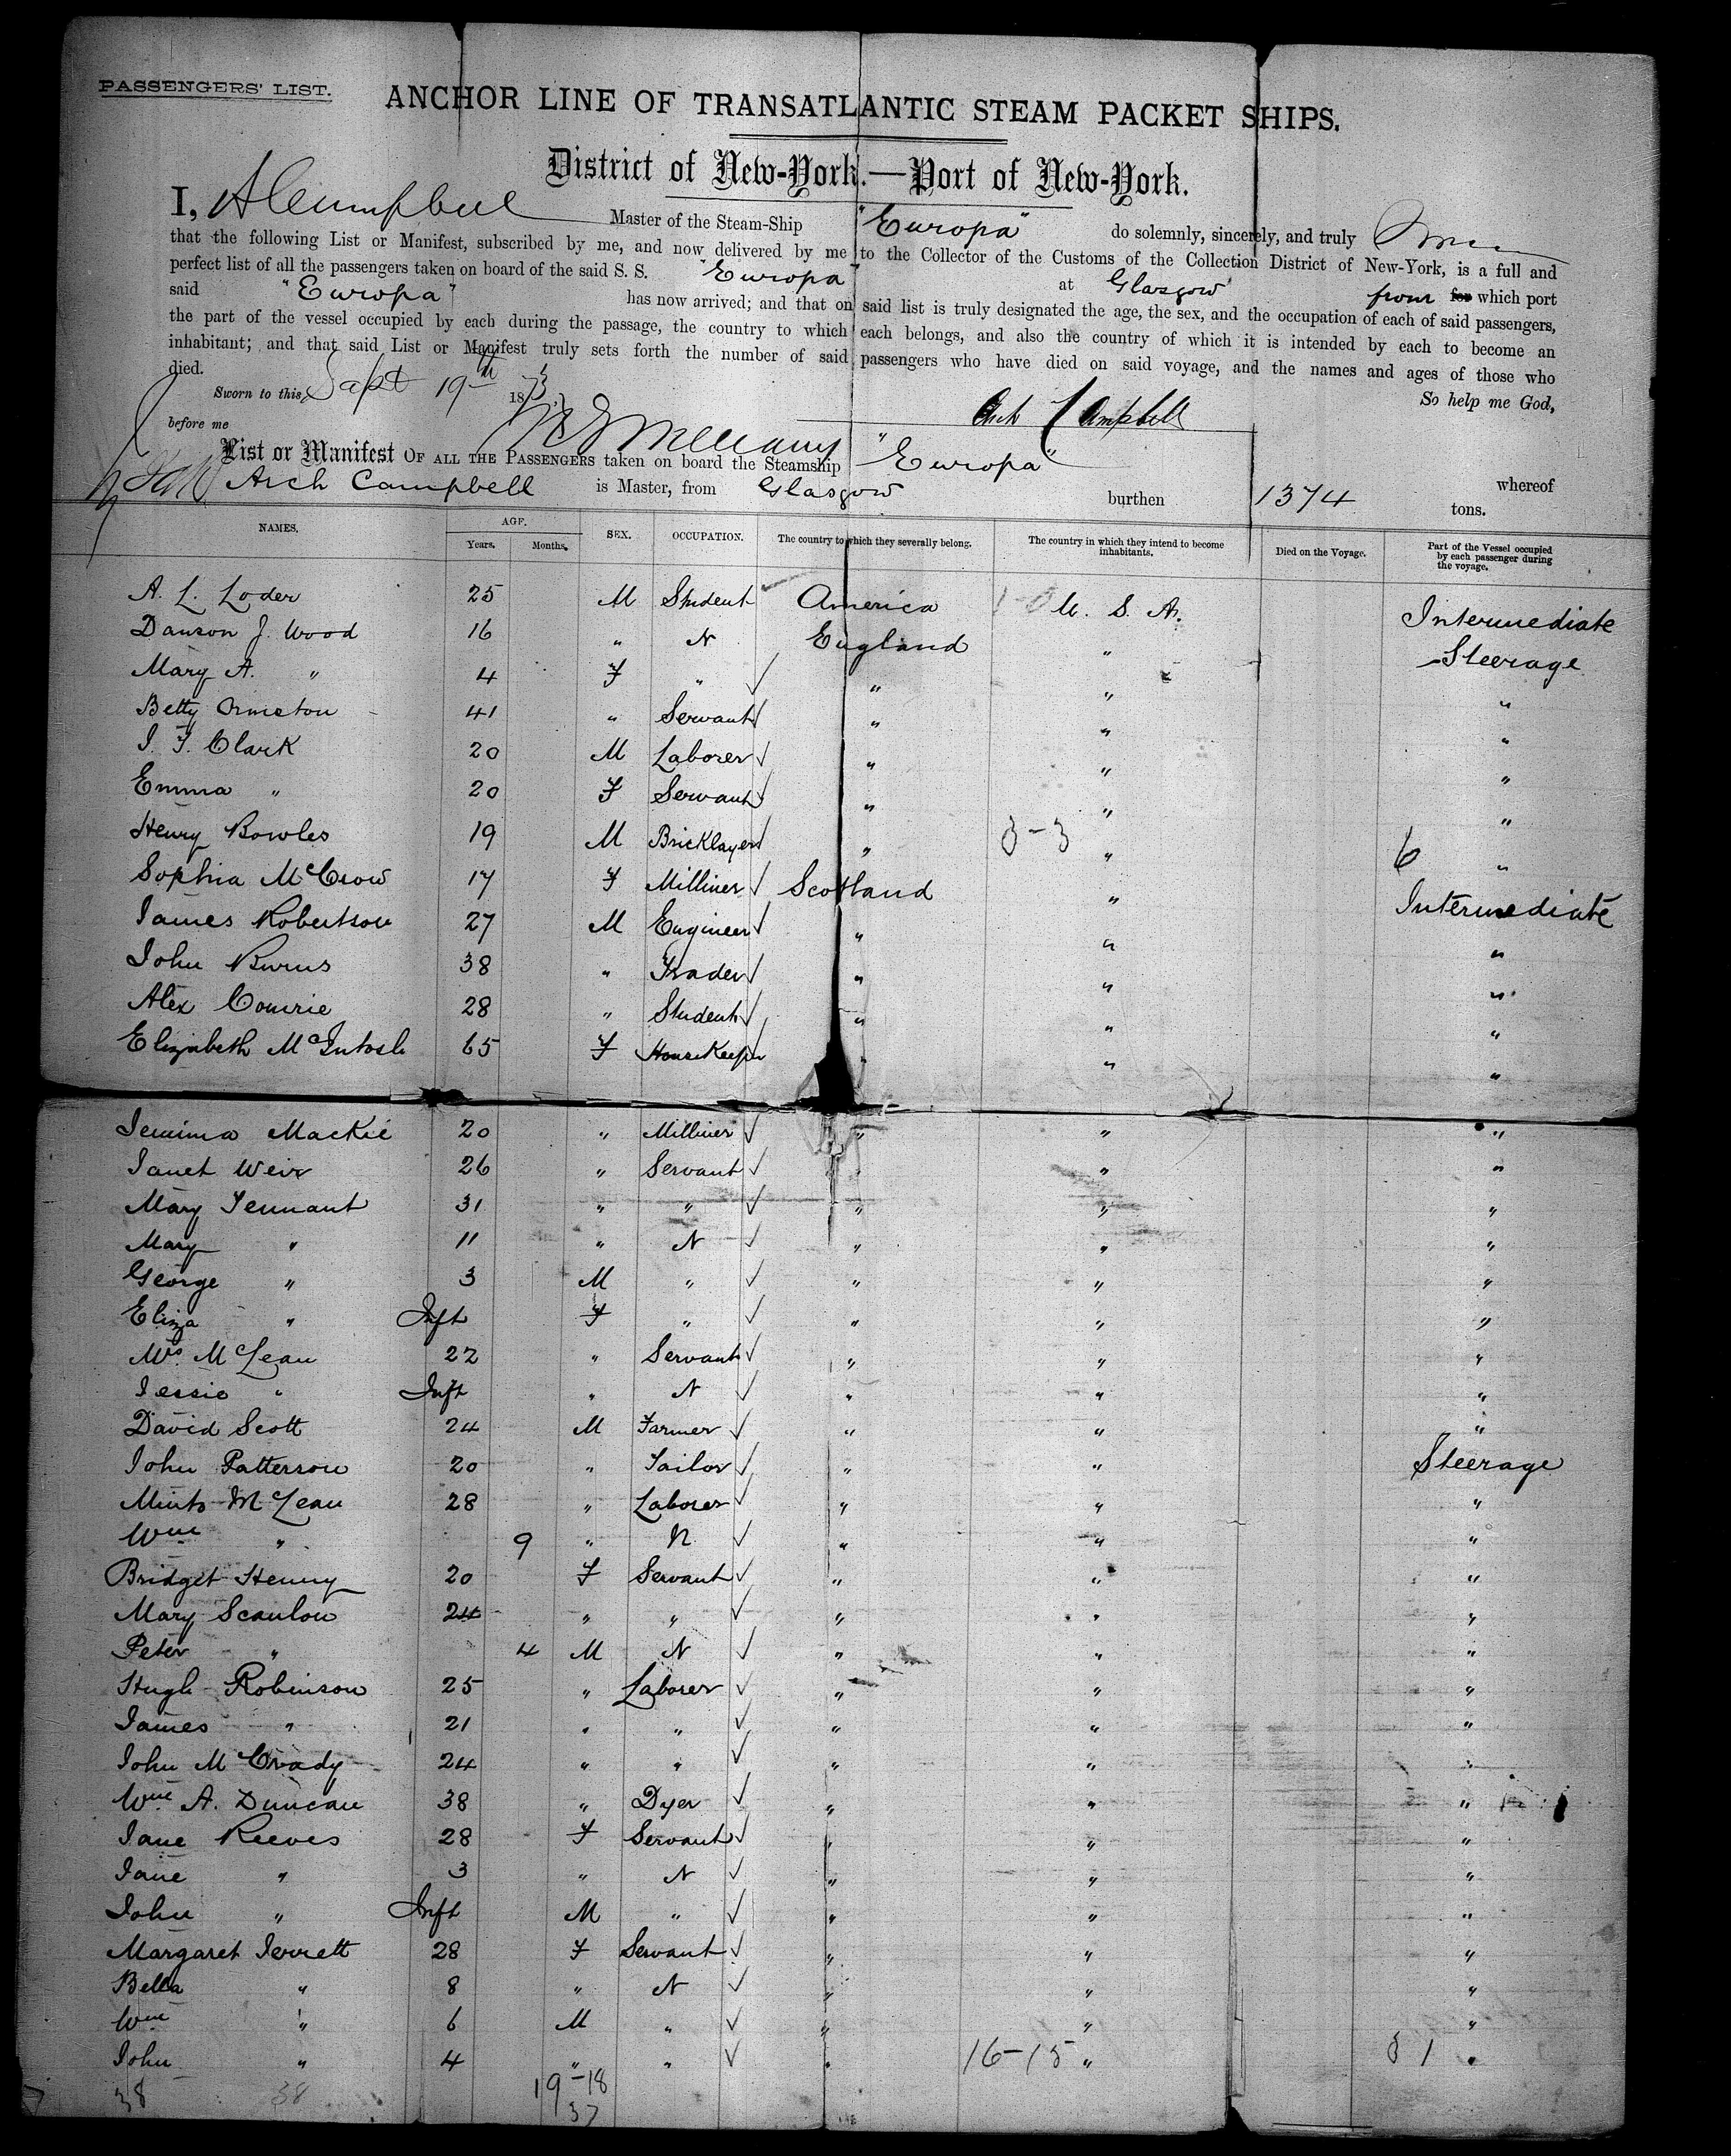 PASSENGERS' LIST.
ANCHOR LINE OF TRANSATLANTIC STEAM PACKET SHIPS.
District of New-York.—Port of New-York.
I, A Campbell Master of the Steam-Ship "Europa" do solemnly, sincerely, and truly
that the following List or Manifest, subscribed by me, and now delivered by me to the Collector of the Customs of the Collection District of New-York, is a full and
perfect list of all the passengers taken on board of the said S. S. "Europa" at Glasgow from for which port
said "Europa" has now arrived; and that on said list is truly designated the age, the sex, and the occupation of each of said passengers,
the part of the vessel occupied by each during the passage, the country to which each belongs, and also the country of which it is intended by each to become an
inhabitant; and that said List or Manifest truly sets forth the number of said passengers who have died on said voyage, and the names and ages of those who
died. So help me God,
Sworn to this, Sept 19th 1873
before me Arch Campbell
List or Manifest OF ALL THE PASSENGERS taken on board the Steamship "Europa" whereof
Arch Campbell is Master, from Glasgow burthen 1374 tons.
NAMES. AGE. Years. Months. SEX. OCCUPATION. The country to which they severally belong. The country in which they intend to become inhabitants. Died on the Voyage. Part of the Vessel occupied by each passenger during the voyage.
A. L. Loder 25 M Student America 1-0 U. S. A. Intermediate
Dawson J. Wood 16 " N England " Steerage
Mary A. " 4 F " " " "
Betty Ormeton 41 " Servant " " "
J. F. Clark 20 M Laborer " " "
Emma " 20 F Servant " " "
Henry Bowles 19 M Bricklayer " 3-3 " 6 "
Sophia McCrow 17 F Milliner Scotland " Intermediate
James Robertson 27 M Engineer " " "
John Burns 38 " Trader " " "
Alex Comrie 28 " Student " " "
Elizabeth McIntosh 65 F HouseKeeper " " "
Jemima Mackie 20 " Milliner " " "
Janet Weir 26 " Servant " " "
Mary Tennant 31 " " " " "
Mary " 11 " N " " "
George " 3 M " " " "
Eliza " Inft F " " " "
Mrs. McLean 22 " Servant " " "
Jessie " Inft " N " " "
David Scott 24 M Farmer " " "
John Patterson 20 " Tailor " " Steerage
McLean 28 " Laborer " " "
Wm " 9 " N " " "
Bridget Henry 20 F Servant " " "
Mary Scanlon 24 " " " " "
Peter " 4 M N " " "
Hugh Robinson 25 " Laborer " " "
James " 21 " " " " "
John McCrady 24 " " " " "
Wm A. Duncan 38 " Dyer " " "
Jane Reeves 28 F Servant " " "
Jane " 3 " N " " "
John " Inft M " " " "
Margaret Jerrett 28 F Servant " " "
Bella " 8 " N " " "
Wm " 6 M " " " "
John " 4 " " " 16-15 " 31 "
38 38 19-18
37